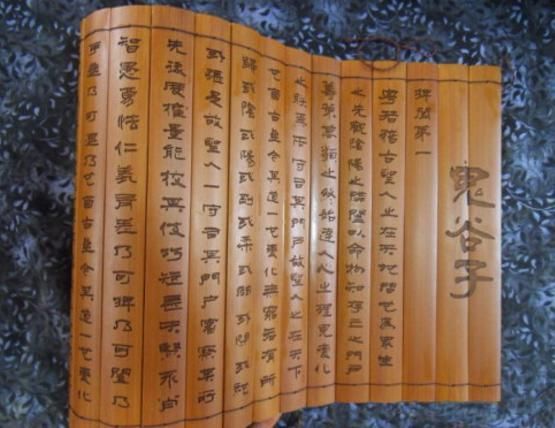 鬼谷子
捭闔第一
粤若稽古聖人之在天地間也為眾生
之先觀陰陽之開闔以命物知存亡之門戶
籌策萬類之終始達人心之理見變化
之朕焉而守司其門戶故聖人之在天下
也自古至今其道一也變化無窮各有所
歸或陰或陽或剛或柔或開或閉或弛
或張是故聖人一守司其門戶審察其所
先後度權量能校其伎巧短長夫賢不肖
智愚勇怯仁義有差乃可捭乃可闔乃
可進乃可退乃也自古至今其道一也變化